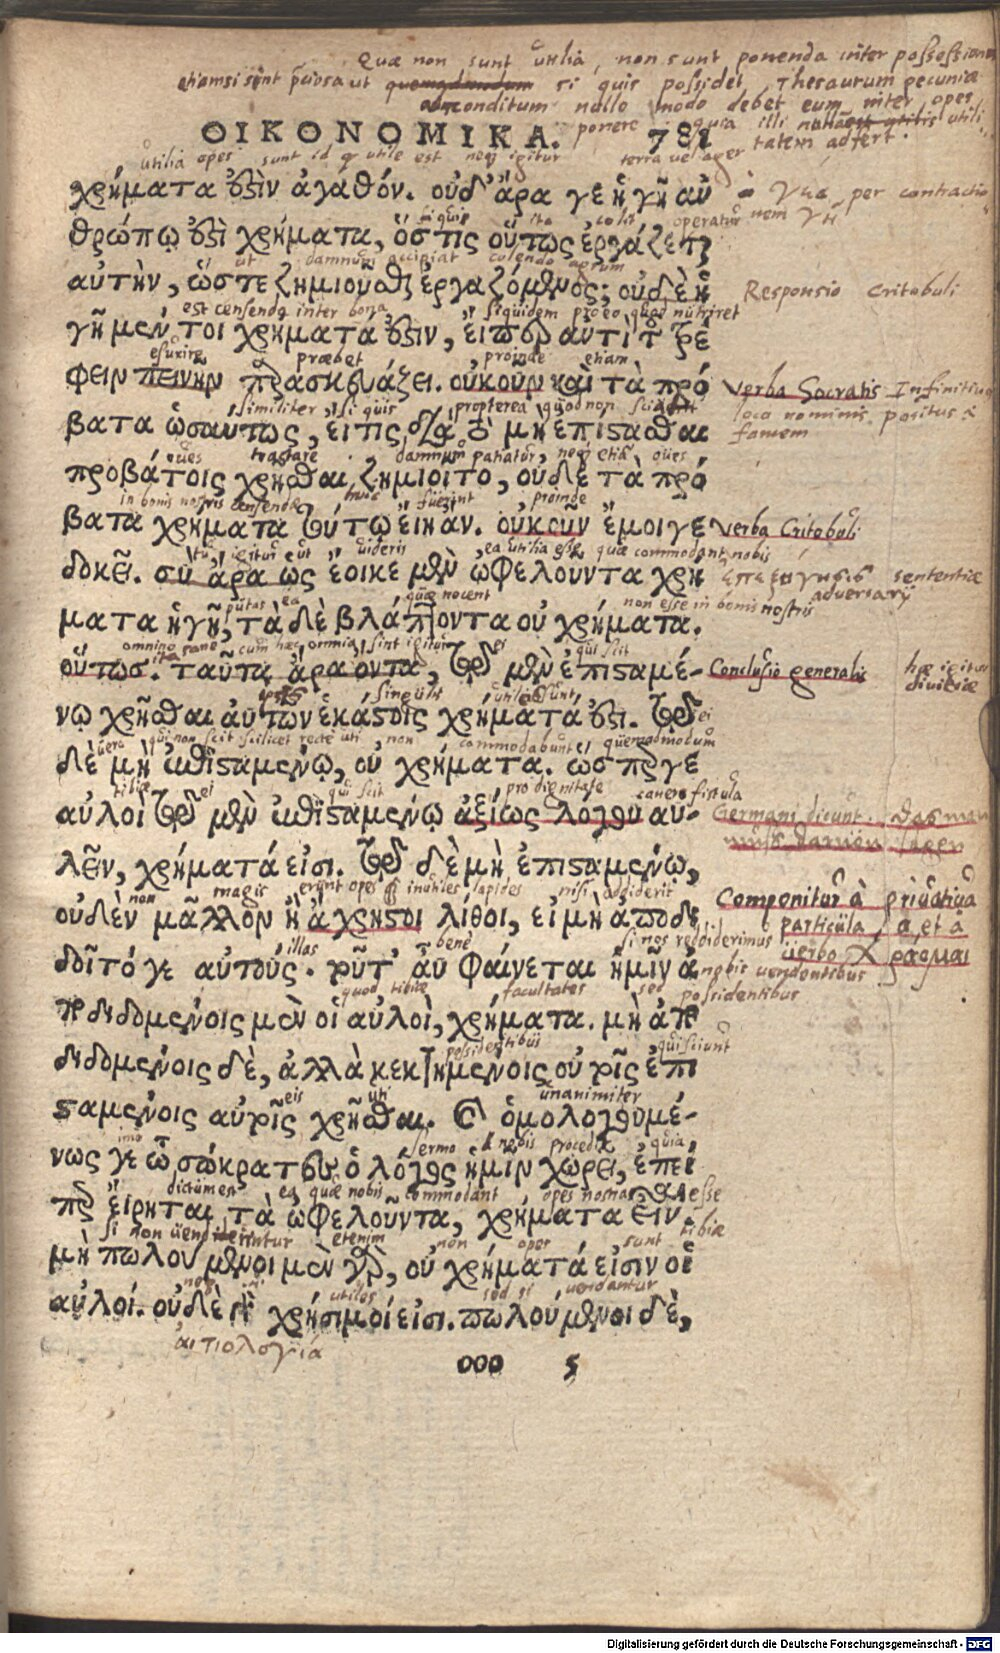 Quæ non sunt utilia, non sunt ponenda inter possessiones
etiamsi sint ut si quis possidet Thesaurum pecuniæ
conditum nullo modo debet eum inter opes
ponere quia illi utili-
tatem adfert.
ΟΙΚΟΝΟΜΙΚΑ. 781
utilia opes sunt id quod utile est neque igitur terra vel ager
χρήματα ὅξιν ἀγαθόν. οὐδ' ἄρα γε ἡ γῆ ἀν
per contractio-
nem γῆ
si quis ita colit operatur
θρώπῳ ὅξι χρήματα, ὅς τις οὕτως ἐργάζεται
ut damnum accipiat colendo agrum
αὐτὴν, ὥστε ζημιοῦσθαι ἐργαζόμενος; οὐδὲ ἡ
Responsio Critobuli
est censenda inter bona siquidem pro eo quod nutriret
γῆ μέν τοι χρήματα ὅξιν, εἴπερ ἀντὶ τοῦ τρέ
esurire præbet proinde etiam
φειν πεινῆν παρασκευάζει. οὐκοῦν καὶ τὰ πρό
verba Socratis Infinitiuus
loco nominis positus
famem
similiter si quis propterea quod non
βατα ὡσαύτως, εἴ τις διὰ τὸ μὴ ἐπίστασθαι
oues tractare damnum patiatur, neque etiam oues
προβάτοις χρῆσθαι ζημιοῖτο, οὐδὲ τὰ πρό
in bonis nostris censendæ huic fuerint proinde
βατα χρήματα τούτῳ εἴησαν. οὐκοῦν ἔμοιγε
verba Critobuli
tu igitur ut uideris ea utilia esse quæ commodant nobis
δοκεῖ. σὺ ἄρα ὡς ἔοικε μὲν ὠφελοῦντα χρή
sententiæ
adversarij
putas ea quæ nocent non esse in bonis nostris
ματα ἡγῇ, τὰ δὲ βλάπτοντα οὐ χρήματα.
omnino sane ita cum hæc omnia sint igitur ei qui scit
οὕτως. ταῦτα ἄρα ὄντα, τῷ μὲν ἐπισαμέ-
Conclusio generalis
hæ igitur
diuitiæ
singulis utilia sunt ei
νῳ χρῆσθαι αὐτῶν ἑκάστοις χρήματά ὅξι. τῷ
uero qui non scit scilicet recte uti non commodabunt quemadmodum
δὲ μὴ ἐπισαμένῳ, οὐ χρήματα. ὥσπερ γε
tibiæ ei qui scit pro dignitate canere fistula
αὐλοὶ τῷ μὲν ἐπισαμένῳ ἀξίως λόγου αὐ-
Germani dicunt. das man
λεῖν, χρήματά εἰσι. τῷ δὲ μὴ ἐπισαμένῳ,
non magis erunt opes inutiles lapides nisi addiderit
οὐδὲν μᾶλλον ἢ ἄχρηστοι λίθοι, εἰ μὴ ἀποδι
Componitur à priuatiua
particula, α, et à
uerbo χράομαι
illas bene si nos reddiderimus
δοῖτό γε αὐτούς. τοῦτ' ἂν φαίνεται ἡμῖν ἀ
nobis uendentibus
quod tibiæ facultates sed possidentibus
ποδιδομένοις μὲν οἱ αὐλοὶ, χρήματα. μὴ ἀπο
possidentibus qui sciunt
διδομένοις δὲ, ἀλλὰ κεκτημένοις οὐ τοῖς ἐπι
eis uti unanimiter
σαμένοις αὐτοῖς χρῆσθαι. Καὶ ὁμολογουμέ-
imo sermo à nobis procedit quia
νως γε ὦ σώκρατες ὁ λόγος ἡμῖν χωρεῖ, ἐπεί
dictum est ea quæ nobis commodant opes nostras esse
περ εἴρηται τὰ ὠφελοῦντα, χρήματα εἶναι.
si non uenderentur etenim non opes sunt tibiæ
μὴ πωλούμενοι μὲν γὰρ, οὐ χρήματά εἰσιν οἱ
utiles sed si uendantur
αὐλοί. οὐδὲν γὰρ χρήσιμοί εἰσι. πωλούμενοι δὲ,
αἰτιολογία
ooo 5
Digitalisierung gefördert durch die Deutsche Forschungsgemeinschaft - DFG